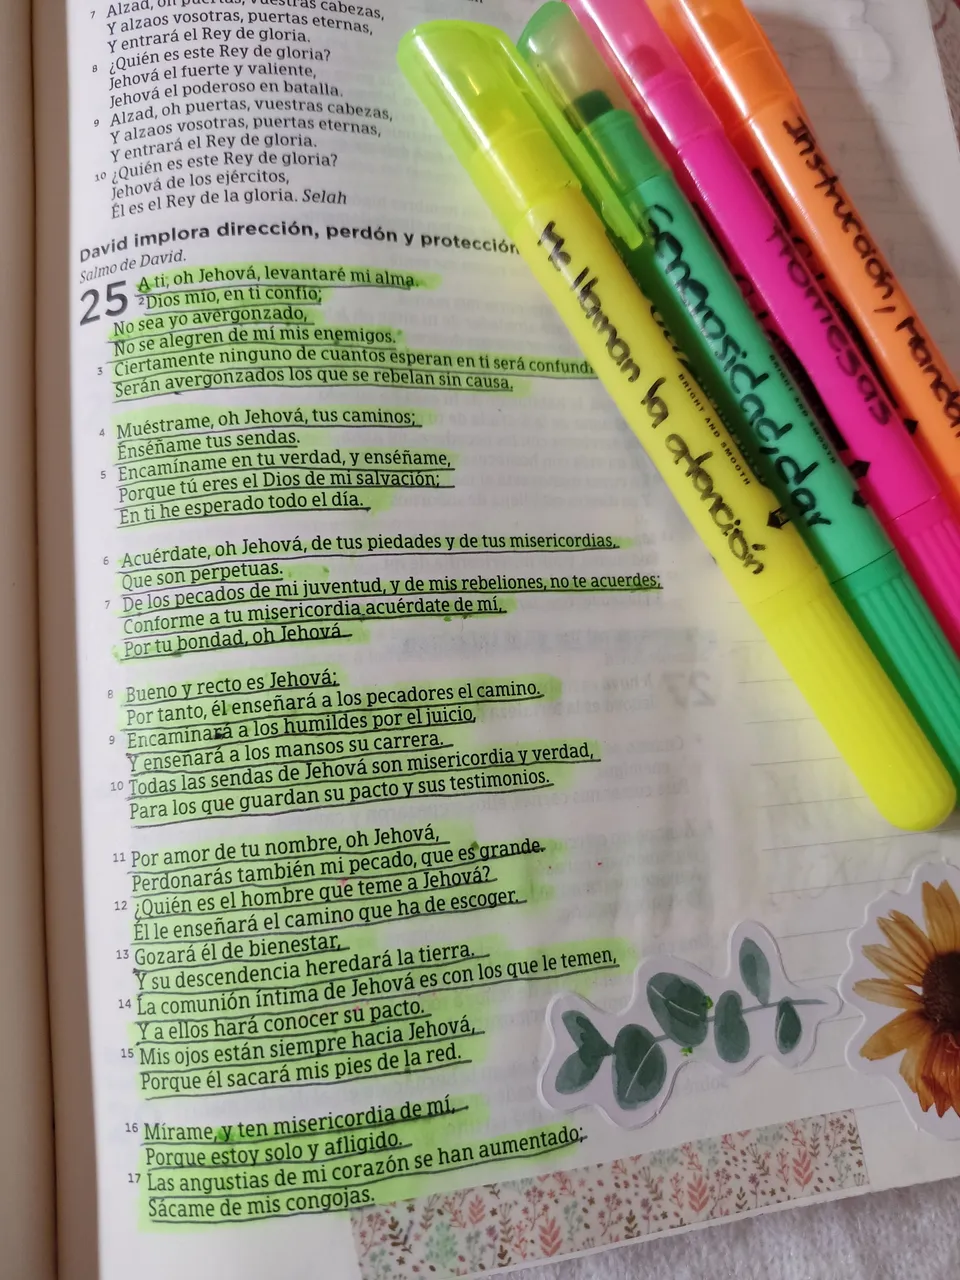 7 Alzad, oh puertas, vuestras cabezas,
Y alzaos vosotras, puertas eternas,
Y entrará el Rey de gloria.
8 ¿Quién es este Rey de gloria?
Jehová el fuerte y valiente,
Jehová el poderoso en batalla.
9 Alzad, oh puertas, vuestras cabezas,
Y alzaos vosotras, puertas eternas,
Y entrará el Rey de gloria.
10 ¿Quién es este Rey de gloria?
Jehová de los ejércitos,
Él es el Rey de la gloria. Selah
David implora dirección, perdón y protección
Salmo de David.
25 A ti, oh Jehová, levantaré mi alma.
2 Dios mío, en ti confío;
No sea yo avergonzado,
No se alegren de mí mis enemigos.
3 Ciertamente ninguno de cuantos esperan en ti será confund
Serán avergonzados los que se rebelan sin causa.
4 Muéstrame, oh Jehová, tus caminos;
Enséñame tus sendas.
5 Encamíname en tu verdad, y enséñame,
Porque tú eres el Dios de mi salvación;
En ti he esperado todo el día.
6 Acuérdate, oh Jehová, de tus piedades y de tus misericordias,
Que son perpetuas.
7 De los pecados de mi juventud, y de mis rebeliones, no te acuerdes;
Conforme a tu misericordia acuérdate de mí,
Por tu bondad, oh Jehová.
8 Bueno y recto es Jehová;
Por tanto, él enseñará a los pecadores el camino.
9 Encaminará a los humildes por el juicio,
Y enseñará a los mansos su carrera.
10 Todas las sendas de Jehová son misericordia y verdad,
Para los que guardan su pacto y sus testimonios.
11 Por amor de tu nombre, oh Jehová,
Perdonarás también mi pecado, que es grande.
12 ¿Quién es el hombre que teme a Jehová?
Él le enseñará el camino que ha de escoger.
13 Gozará él de bienestar,
Y su descendencia heredará la tierra.
14 La comunión íntima de Jehová es con los que le temen,
Y a ellos hará conocer su pacto.
15 Mis ojos están siempre hacia Jehová,
Porque él sacará mis pies de la red.
16 Mírame, y ten misericordia de mí,
Porque estoy solo y afligido.
17 Las angustias de mi corazón se han aumentado;
Sácame de mis congojas.
Me llaman la atención
BRIGHT AND SMOOTH
Generosidad, dar
BRIGHT AND SMOOTH
Promesas
Instrucción, Manda